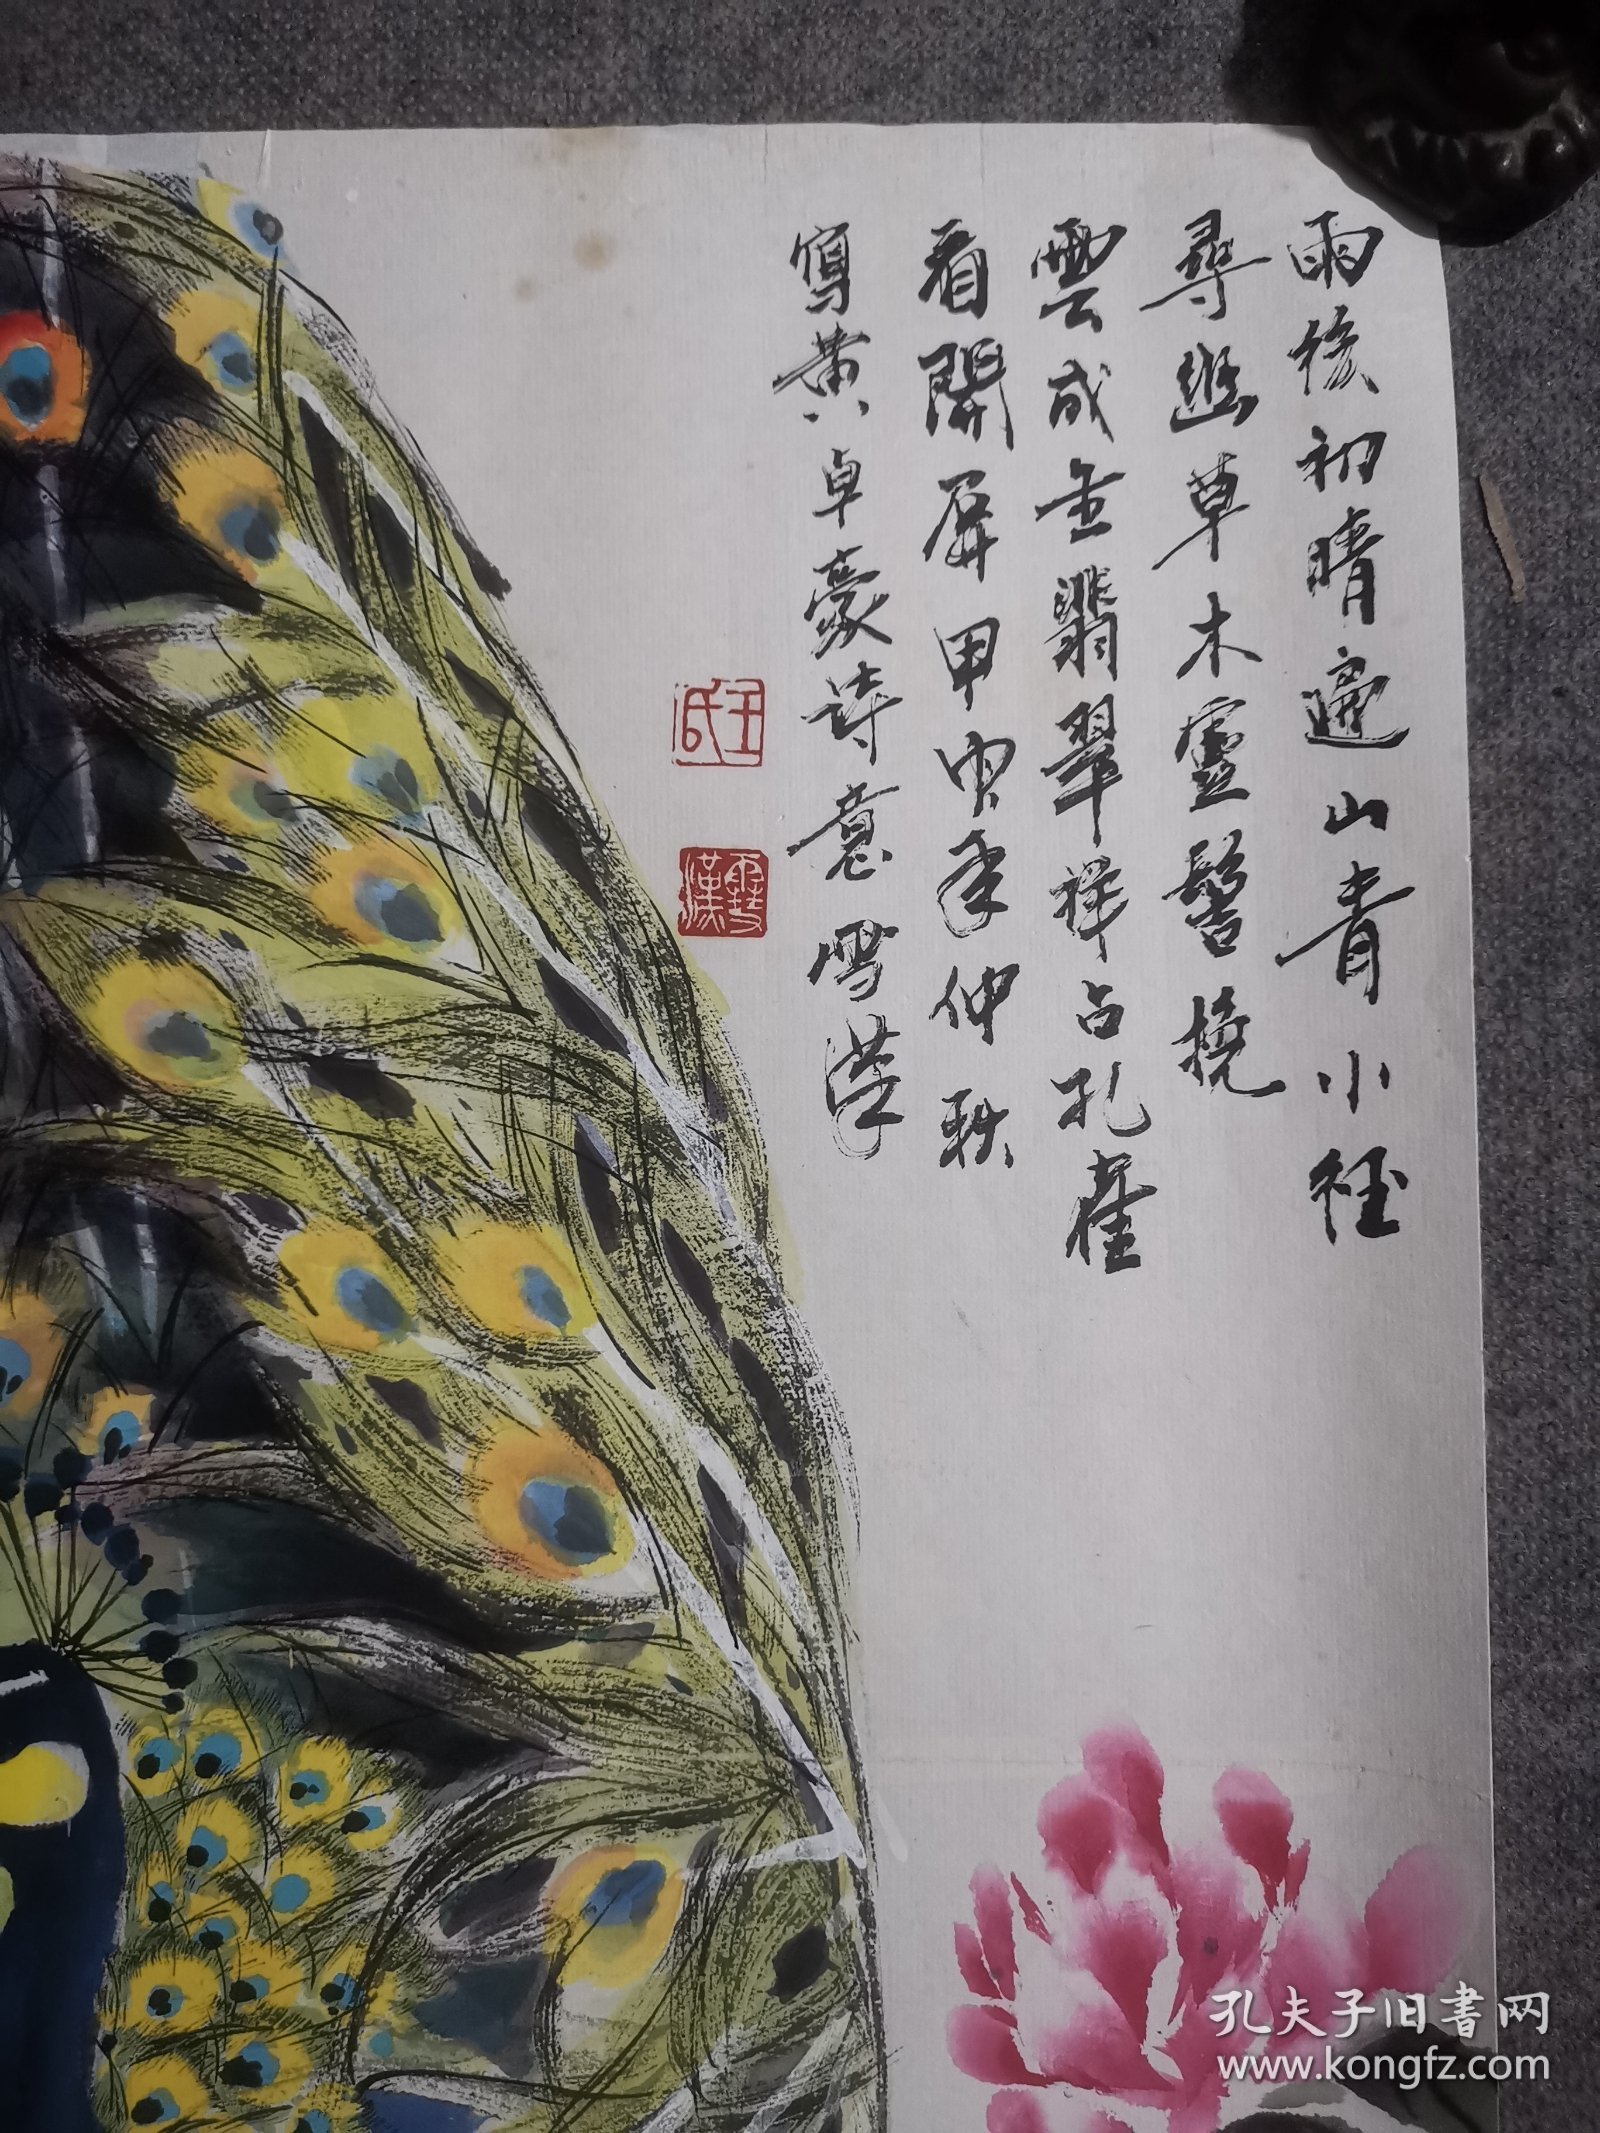 雨後初晴遍山青小徑
尋幽草木靈髻挽
雲成金翡翠祥占孔雀
看開屏甲申年仲秋
寫黄卓豪詩意雪漢
王氏
雪漢
孔夫子旧書网
www.kongfz.com